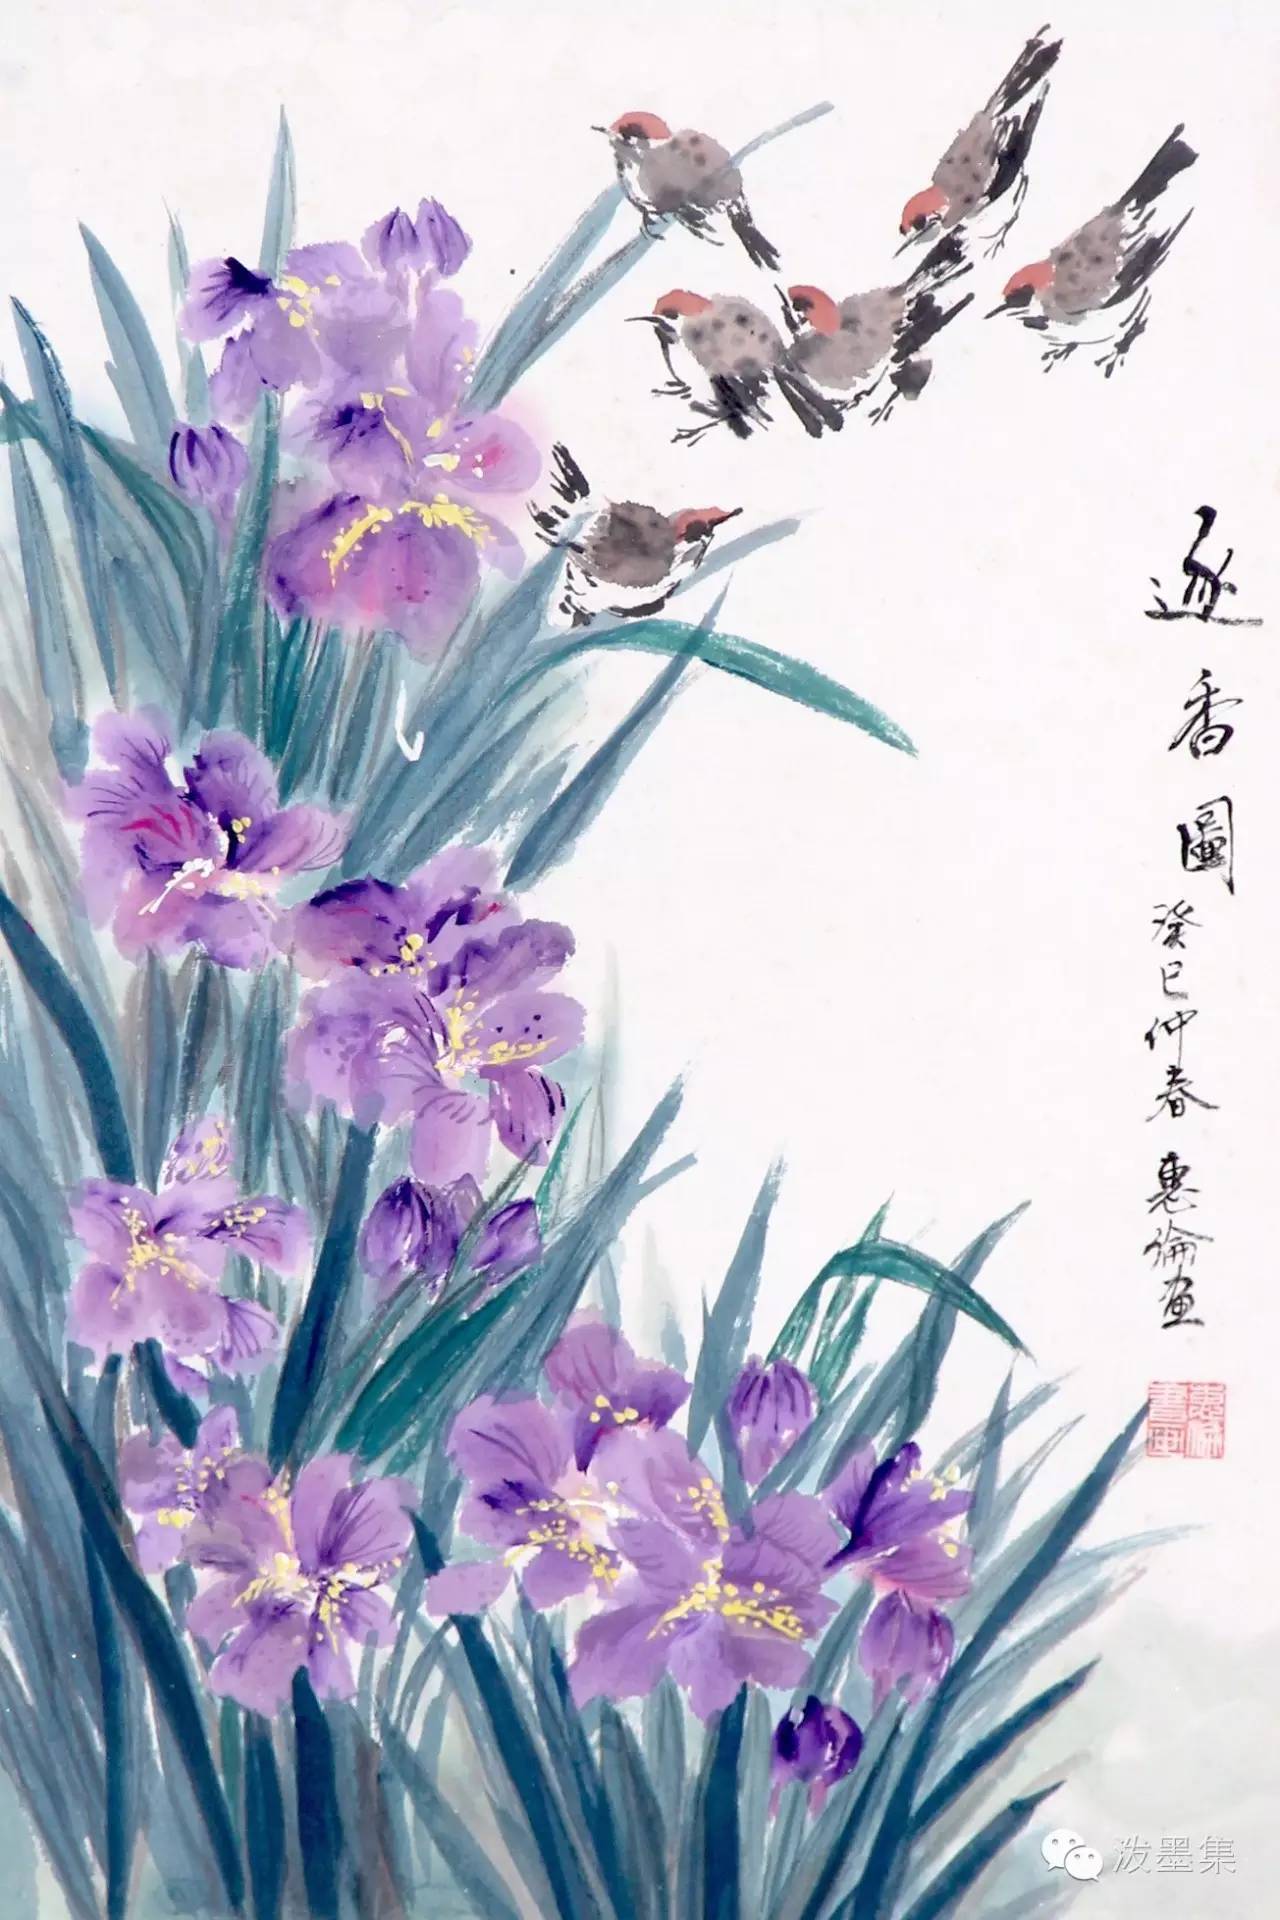 逐香圖
癸巳仲春 惠倫畫
惠倫書画
泼墨集